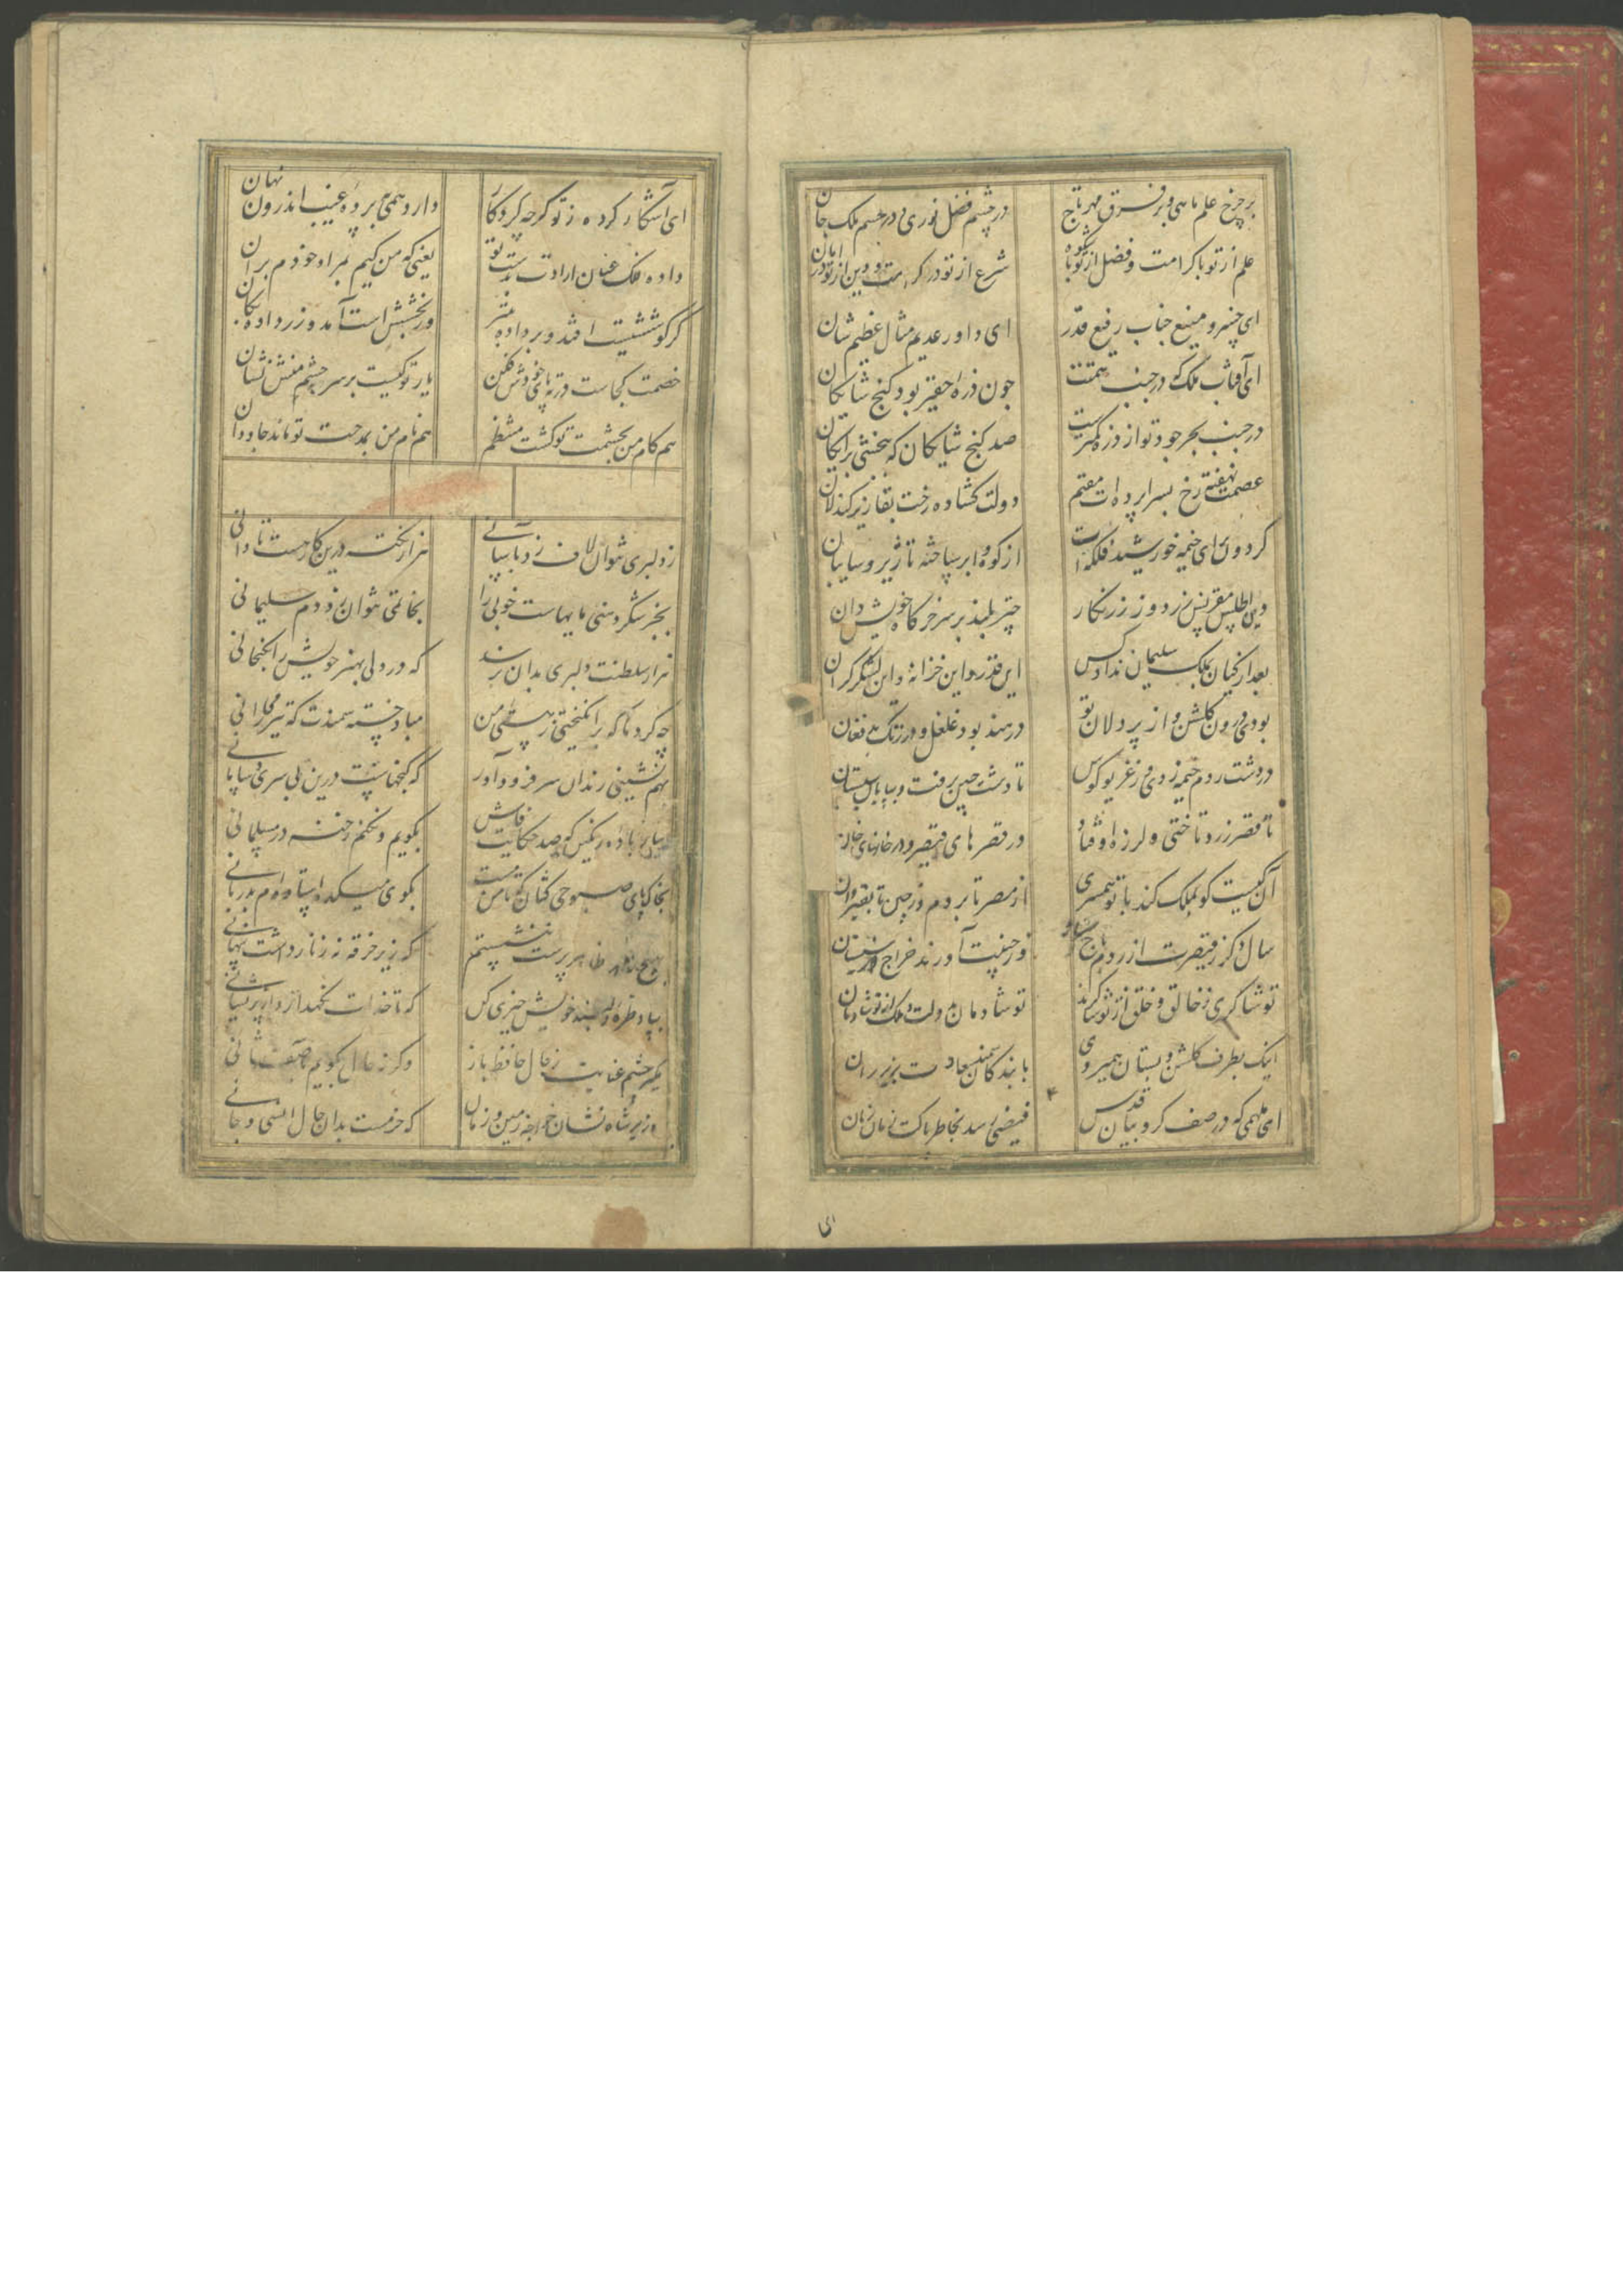 بر چرخ علم ماهی و بر فرق مهر تاج
در چشم فضل نوری و در جسم ملک جان
علم از تو با کرامت و فضل از تو با شکوه
شرع از تو در کرامت و دین از تو در امان
ای خسرو منیع جناب رفیع قدر
ای داور عدیم مثال عظیم شان
ای آفتاب ملک که در جنب همتت
چون ذره حقیر بود کنج شایکان
در جنب بحر جود تو از ذره کمترست
صد کنج شایکان که ببخشی برایکان
عصمت نهفته رخ بسراپرده ات مقیم
دولت کشاده رخت بقا زیر کندلان
کردون برای خیمه خورشید فلکه ات
از کوه و ابر ساخته تا زیر و سایبان
وین اطلس مقرنس زردوز زرنکار
چتر بلند بر سر خرکاه خویش دان
بعد از کیان بملک سلیمان نداد کس
این قدر و این خزانه و این لشکر کران
بودی درون کلشن و از پردلان تو
در هند بود غلغل و در زنک بد فغان
در دشت روم خیمه زدی و غریو کوس
تا دشت چین برفت و بیابان سیستان
تا قصر زرد تاختی و لرزه اوفتاد
در قصرهای قیصر و در خانهای خان
آن کیست کو بملک کند با تو همسری
از مصر تا بروم و ز چین تا بقیروان
سال دکر ز قیصرت از روم باج سر
وز چینت آورند خراج
تو شاکری ز خالق و خلق از تو شاکرند
تو شادمان بدولت و ملک از تو شادمان
اینک بطرف کلشن و بستان همیروی
با بندکان سمند سعادت بزیر ران
ای ملهمی که در صف کروبیان قدس
فیضی رسد بخاطر پاکت زمان زمان
ای
ای آشکار کرده ز تو هرچه کردکار
دارد همی بپرده غیب اندرون نهان
داده فلک عنان ارادت بدست تو
یعنی که من کیم بمراد خودم بران
کر کوششیت افتد و بر داده به تیر
ور بخششیت آمد و زر داده بکان
خصمت کجاست در ته پای خودش فکن
یار تو کیست بر سر چشم منش نشان
هم کام من بخدمت تو کشت منتظم
هم نام من بمدحت تو ماند جاودان
ز دلبری نتوان لاف زد بآسانی
هزار نکته درین کار هست تا دانی
بجز شکر دهنی مایهاست خوبی را
بخاتمی نتوان زد دم سلیمانی
هزار سلطنت دلبری بدان نرسد
که در دلی بهنر خویش را بکنجانی
چه کردها که برانکیختی ز هستی من
مباد خسته سمندت که تیز میرانی
بهم نشینی رندان سر فرود آور
که کنجهاست درین بی سری و سامانی
بیار باده رنکین که صد حکایت فاش
بکویم و نکنم رخنه در مسلمانی
بخاک پای صبوحی کشان که تا من مست
بکوی میکده استاده ام بدربانی
بهیچ زاهد ظاهر پرست ننشستم
که زیر خرقه نه زنار داشت پنهانی
بیاد طره دلبند خویش خیری کن
که تا خدات نکهدارد از پریشانی
مکیر چشم عنایت ز حال حافظ باز
وکر نه حال بکویم بآصف ثانی
وزیر شاه نشان خواجه زمین و زمان
که خرمست بدان حال انسی و جانی